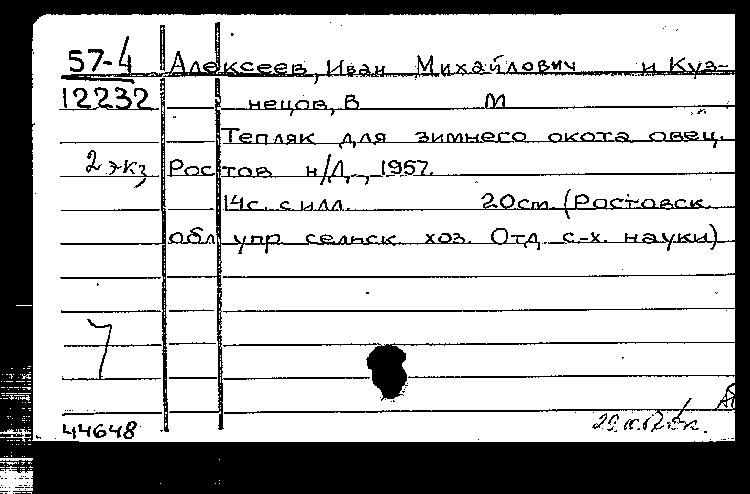 57-4 Алексеев, Иван Михайлович и Куз-
12232 нецов, В М
Тепляк для зимнего окота овец.
2 экз Ростов н/Д., 1957.
14с. с илл. 20см. (Ростовск.
обл упр сельск. хоз. Отд с-х. науки)
44648